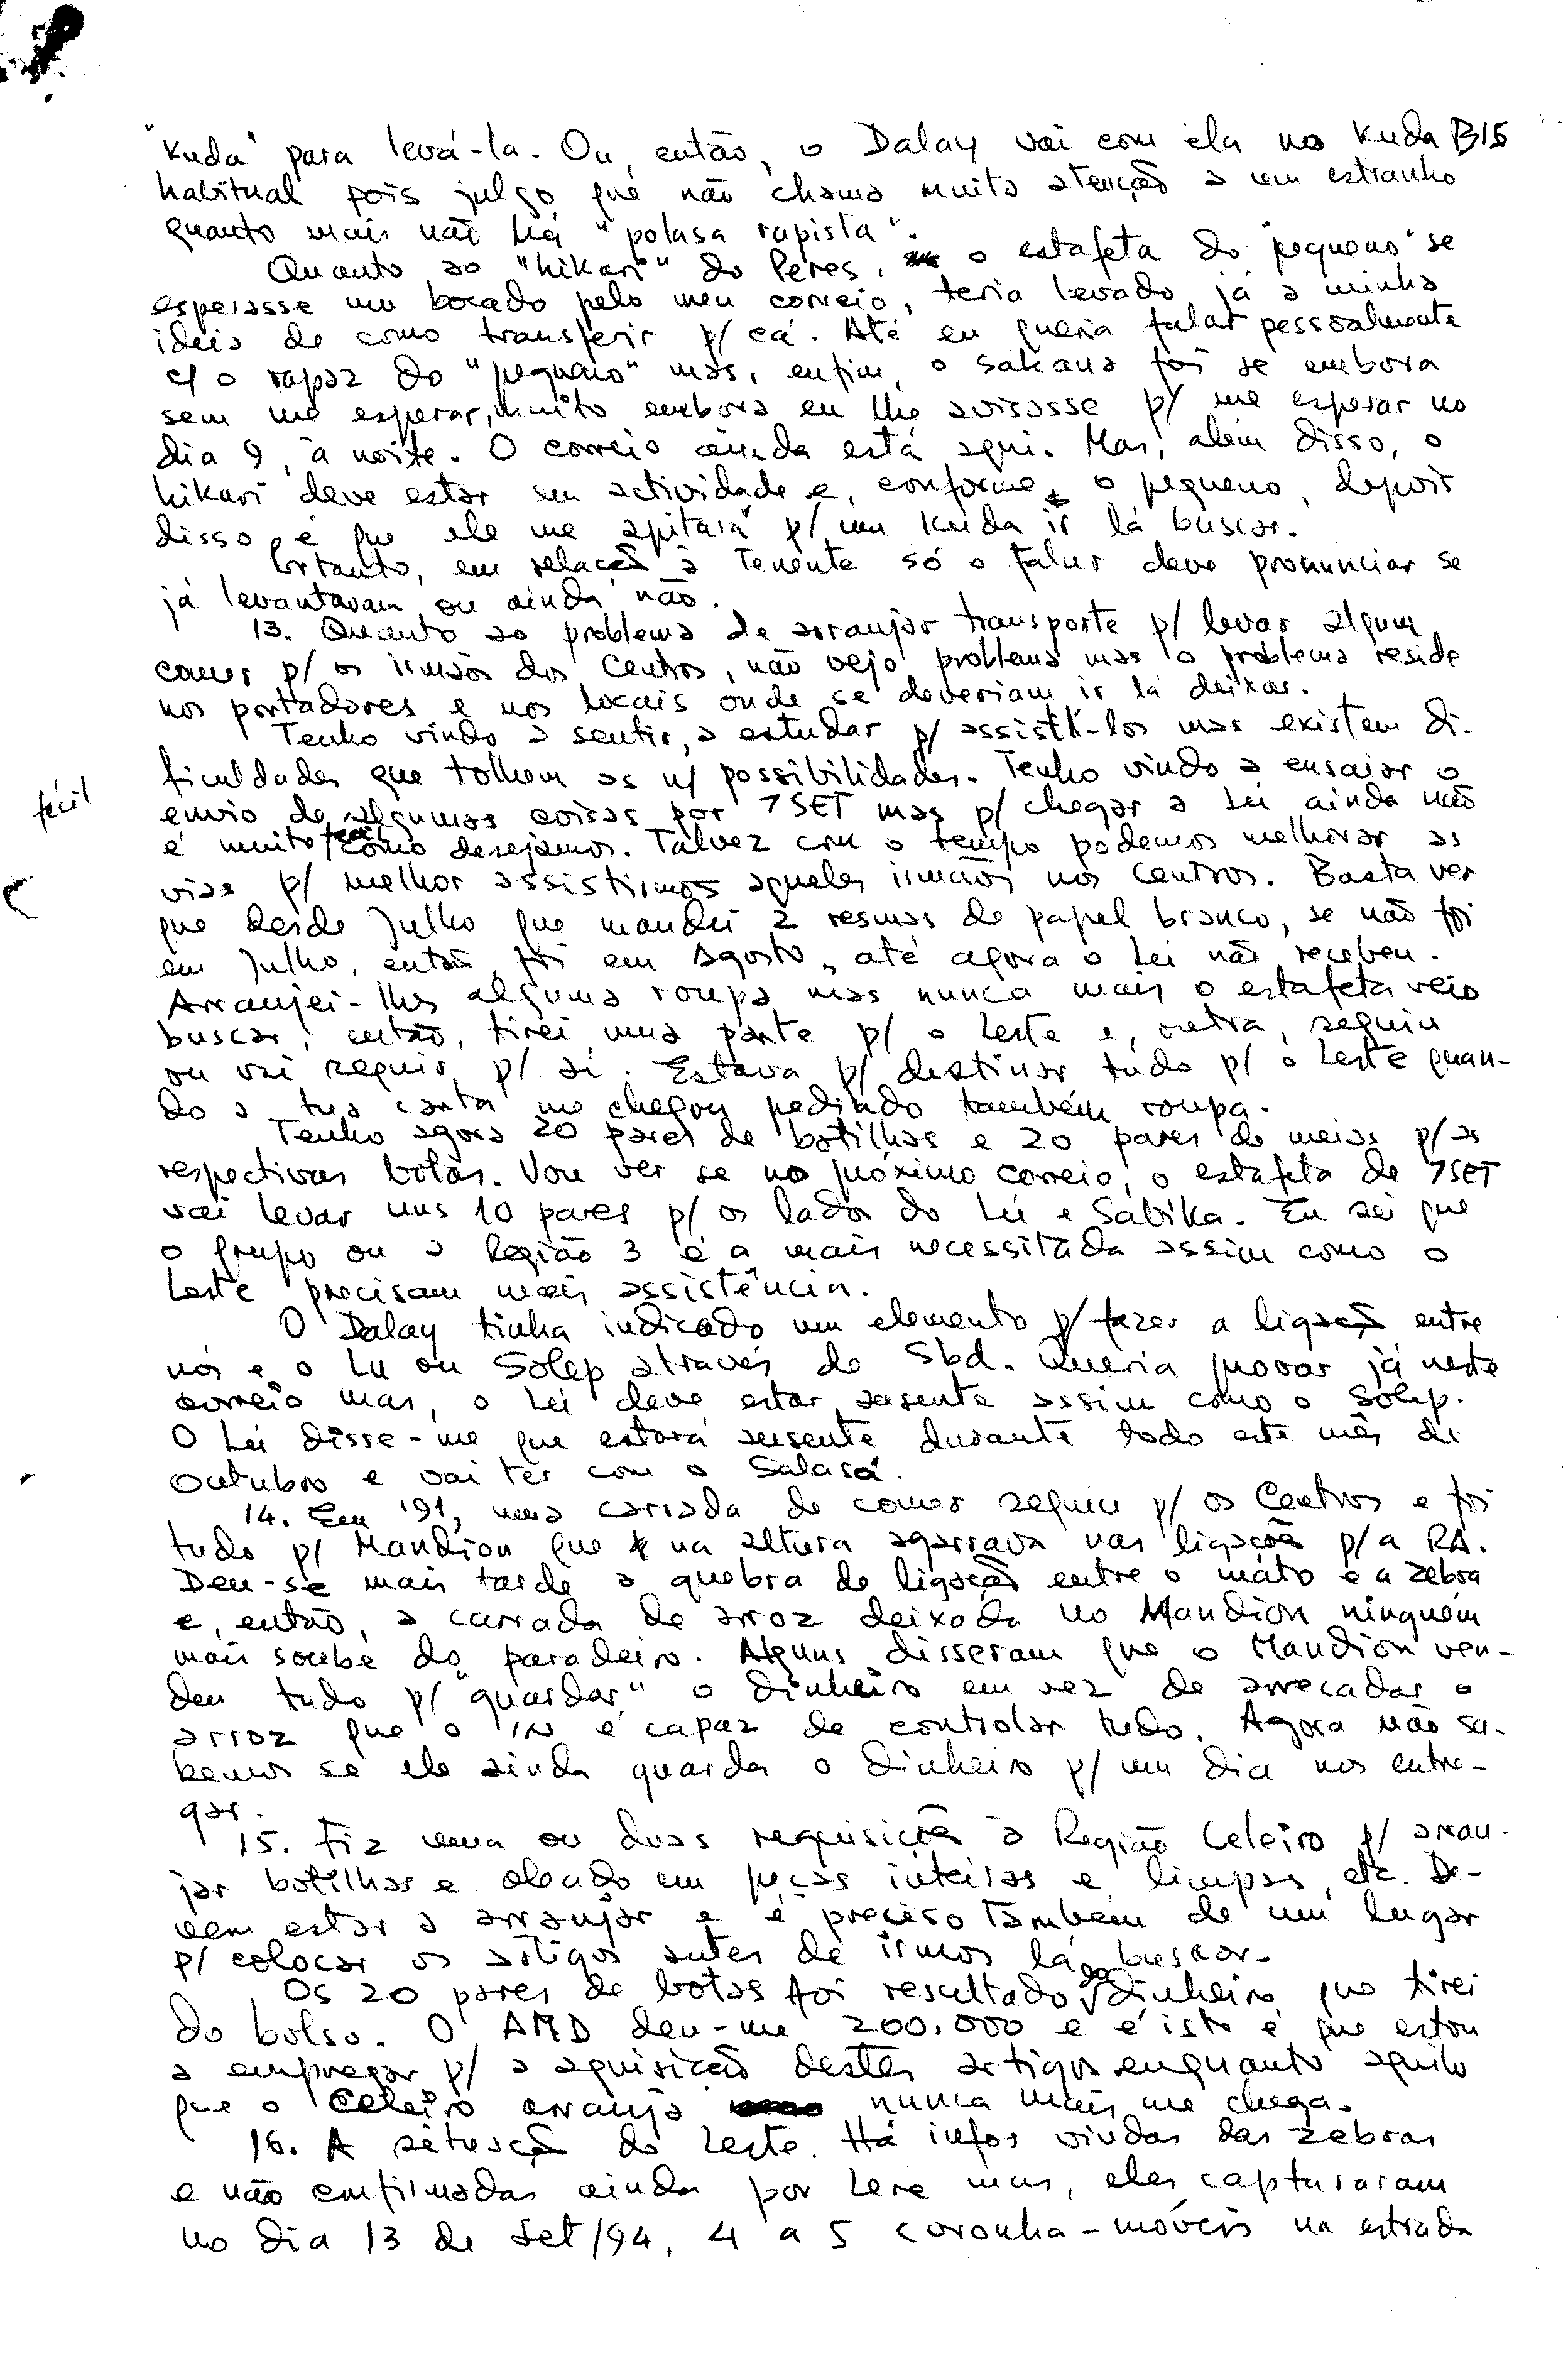 "Kuda" para levá-la. Ou, então, o Dalay vai com ela no Kuda B15
habitual pois julgo que não chama muito atenção a um estranho
quanto mais não há "polasa rapista".
Quanto ao "hikari" do Peres, o estafeta do "pequeno" se
esperasse um bocado pelo meu correio, teria levado já a minha
ideia de como transferir p/ cá. Até eu queria falar pessoalmente
c/ o rapaz do "pequeno" mas, enfim, o sakana foi se embora
sem me esperar, muito embora eu lhe avisasse p/ me esperar no
dia 9, à noite. O correio ainda está aqui. Mas, além disso, o
hikari deve estar em actividade e, conforme o pequeno, depois
disso é que ele me apitará p/ um Kuda ir lá buscar.
Portanto, em relação à Tenente só o falur deve pronunciar se
já levantavam ou ainda não.
13. Quanto ao problema de arranjar transporte p/ levar algum
comer p/ os irmãos dos Centros, não vejo problema mas o problema reside
nos portadores e nos locais onde se deveriam ir lá deixar.
Tenho vindo a sentir, a estudar p/ assistí-los mas existem di-
ficuldades que tolhem as n/ possibilidades. Tenho vindo a ensaiar o
fácil
envio de algumas coisas por 7SET mas p/ chegar a Lei ainda não
é muito fácil como desejamos. Talvez com o tempo podemos melhorar as
vias p/ melhor assistirmos aqueles irmãos nos Centros. Basta ver
que desde Julho que mandei 2 resmas de papel branco, se não foi
em Julho, então foi em Agosto, até agora o Lei não recebeu.
Arranjei-lhes alguma roupa mas nunca mais o estafeta veio
buscar; então, tirei uma parte p/ o Leste e, outra, seguiu
ou vai seguir p/ aí. Estava p/ destinar tudo p/ o Leste quan-
do a tua carta me chegou pedindo também roupa.
Tenho agora 20 pares de botilhas e 20 pares de meias p/ as
respectivas botas. Vou ver se no próximo correio, o estafeta de 7SET
vai levar uns 10 pares p/ os lados do Lei e Sabika. Eu sei que
o grupo ou a Região 3 é a mais necessitada assim como o
Leste precisam mais assistência.
O Dalay tinha indicado um elemento p/ fazer a ligação entre
nós e o Lu ou Solep através de Sbd. Queria provar já neste
correio mas, o Lei deve estar ausente assim como o Solep.
O Lei disse-me que estará ausente durante todo este mês de
Outubro e vai ter com o Salasá.
14. Em '91, uma carrada de comer seguiu p/ os Centros e foi
tudo p/ Mandion que na altura agarrava nas ligações p/ a RA.
Deu-se mais tarde a quebra de ligação entre o mato e a zebra
e, então, a carrada de arroz deixada no Mandion ninguém
mais soube do paradeiro. Alguns disseram que o Mandion ven-
deu tudo p/ "guardar" o dinheiro em vez de arrecadar o
arroz que o IN é capaz de controlar tudo. Agora não sa-
bemos se ele ainda guarda o dinheiro p/ um dia nos entre-
gar.
15. Fiz uma ou duas requisições à Região Celeiro p/ arran-
jar botilhas e oleado em peças inteiras e limpas, etc. De-
vem estar a arranjar e é preciso também de um lugar
p/ colocar os artigos antes de irmos lá buscar.
Os 20 pares de botas foi resultado do dinheiro que tirei
do bolso. O AMD deu-me 200.000 e é isto é que estou
a empregar p/ a aquisição destes artigos enquanto aquilo
que o Celeiro arranja nunca mais me chega.
16. A situação do Leste. Há infos vindas das zebras
e não confirmadas ainda por Lere mas, eles capturaram
no dia 13 de Set/94, 4 a 5 coronha-móveis na estrada